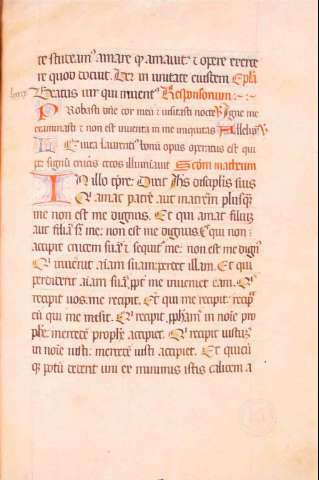 te studeam' amare qd amavit & opere exerce
re quod docuit. Per in unitate eiusdem Epla
Beatus vir qui invent' Responsorium
Probasti dne cor meu & visitasti nocte Igne me
examinasti & non est inventa in me iniquitas Alleluia
Levita laurenti' bonu opus operatus est qui
per signu crucis cecos illuminavit Scdm matheum
In illo tpre: Dixit Ihs discipulis suis
Qi amat patre aut matrem plusq
me non est me dignus. Et qui amat filiu
aut filia sr me: non est me dignus. Et qui non
accipit crucem sua & sequit' me: non est me dign'
Qi invenit aiam suam: perdet illam. Et qui
perdiderit aiam sua ppt me inveniet eam. Qi
recipit vos: me recipit. Et qui me recipit: recip
eu qui me misit. Qi recipit pphetam in noie pro
phe: mercede prophe accipiet. Qi recipit iustu
in noie iusti: mercede iusti accipiet. Et quicu
q potu dederit uni ex minimis istis calicem a